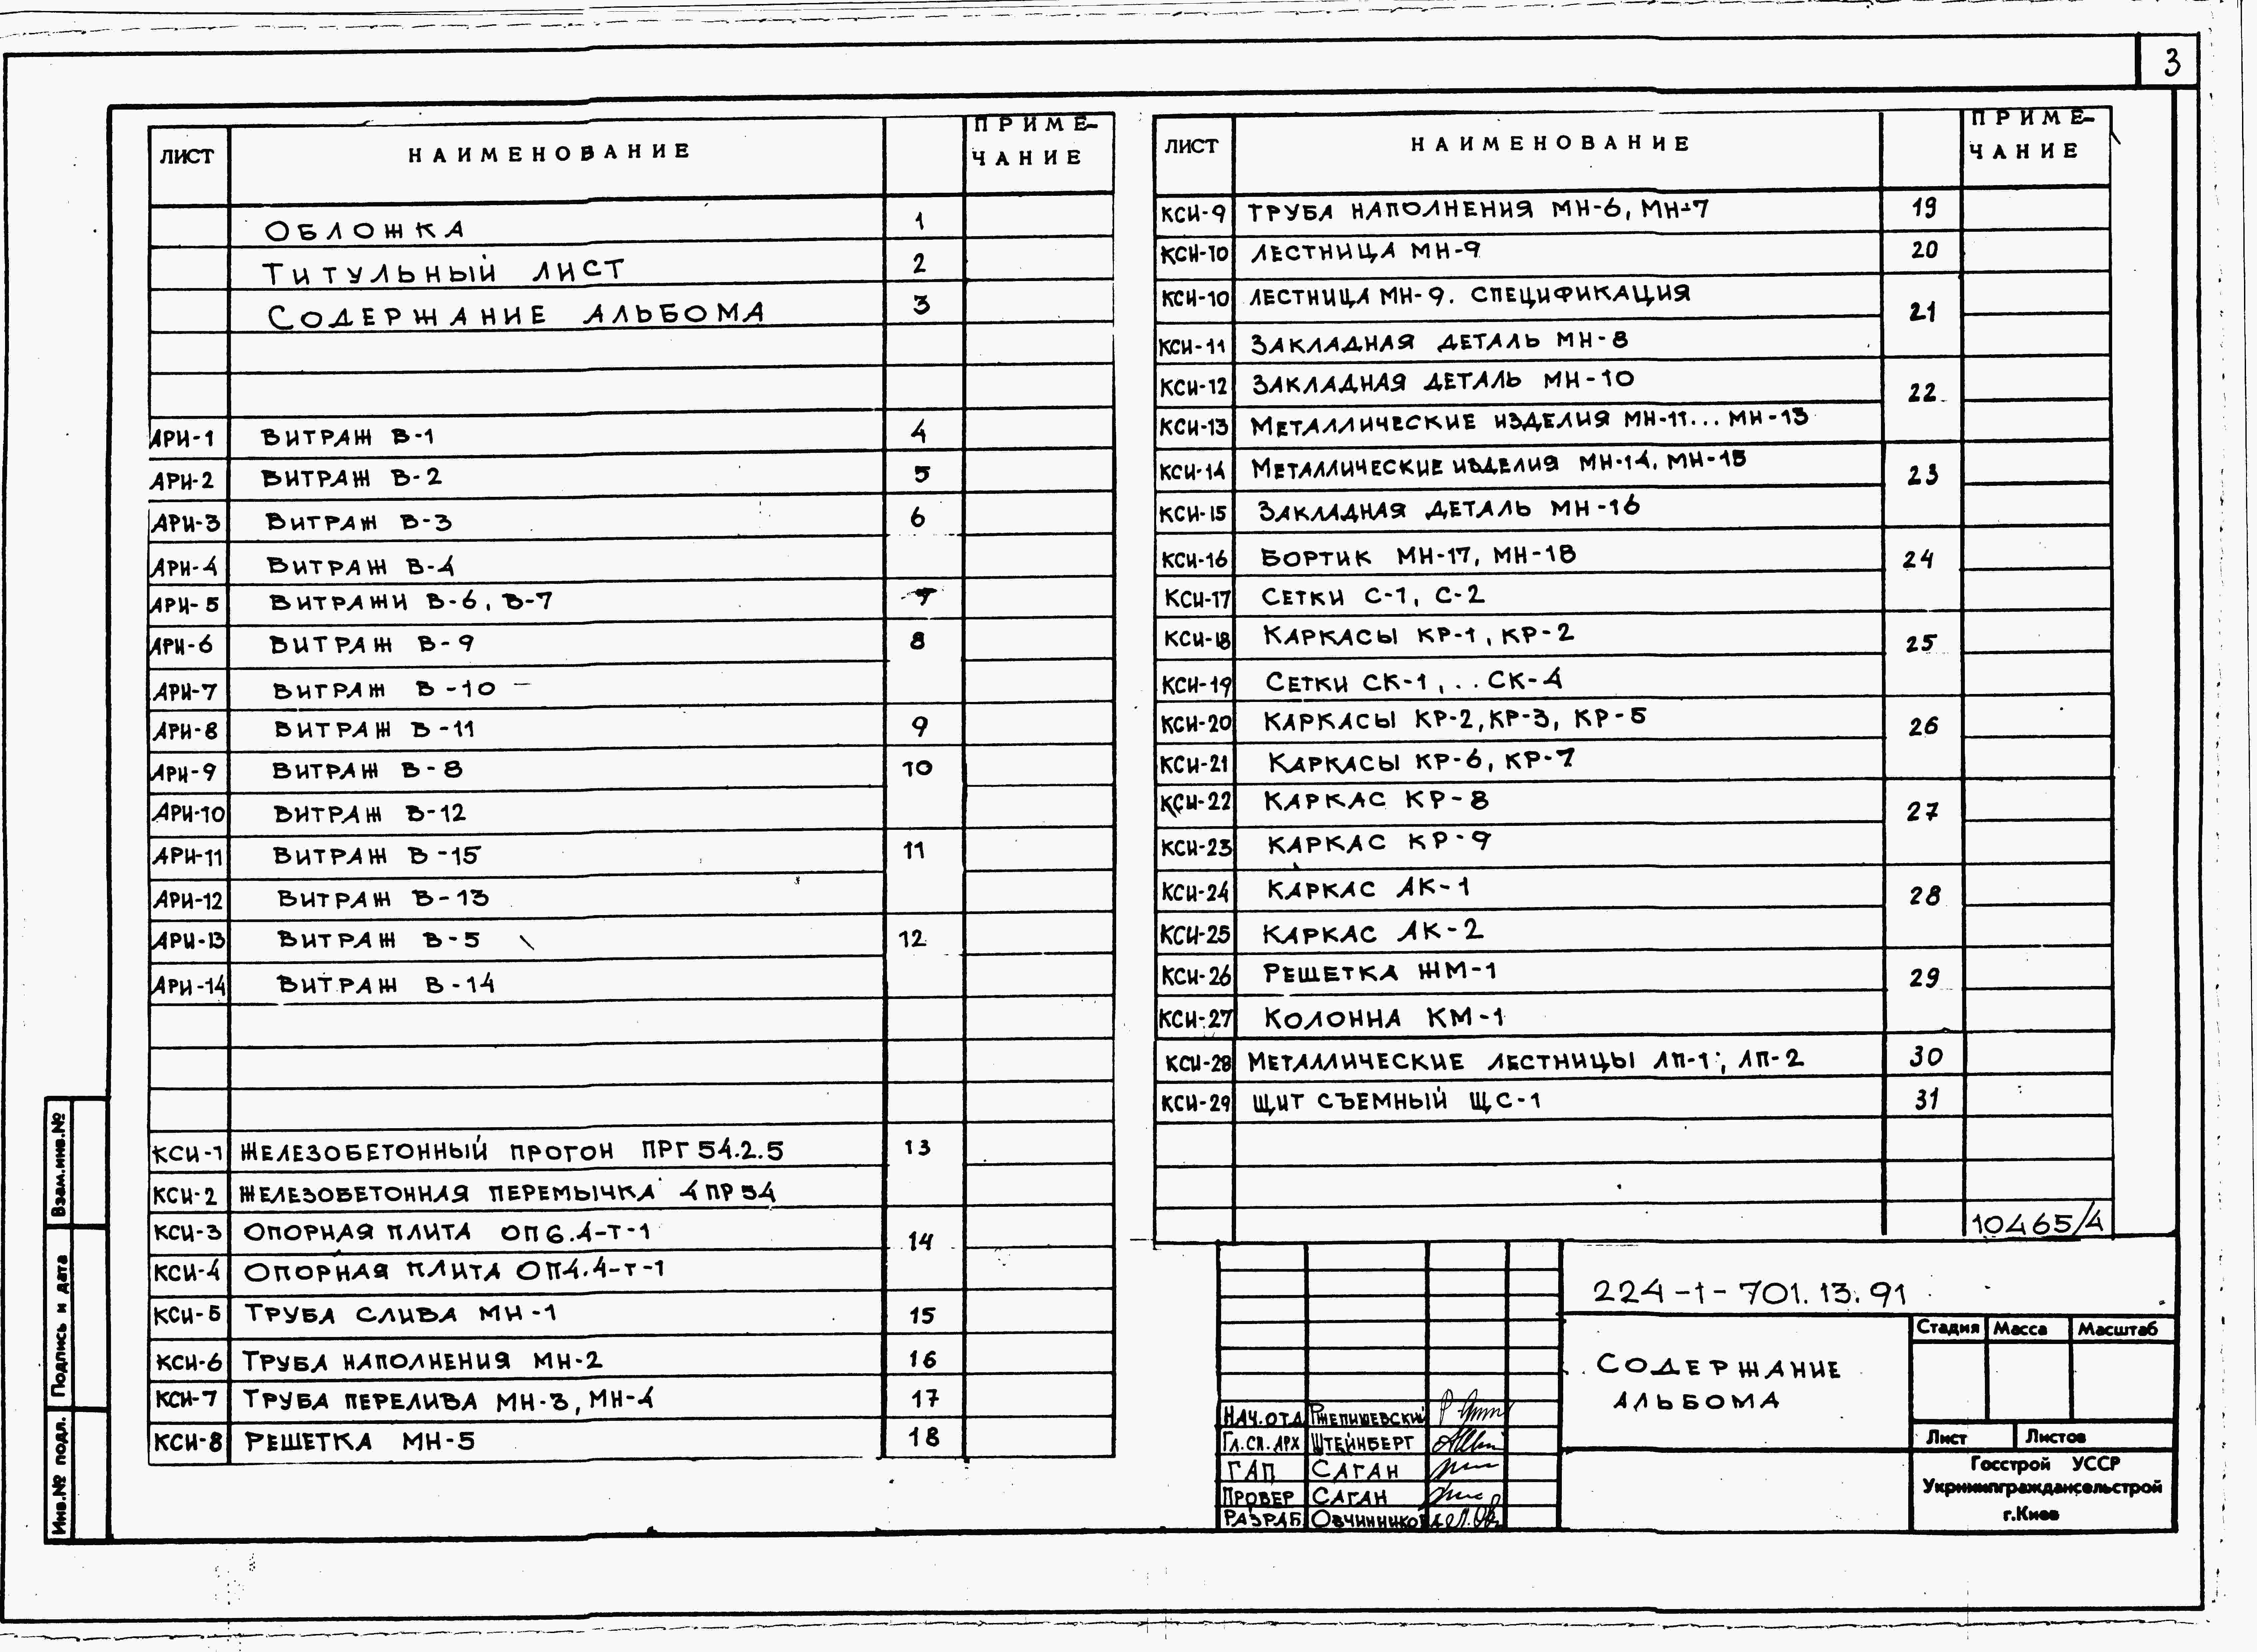 3
ЛИСТ НАИМЕНОВАНИЕ ПРИМЕ-
ЧАНИЕ
ОБЛОЖКА 1
ТИТУЛЬНЫЙ ЛИСТ 2
СОДЕРЖАНИЕ АЛЬБОМА 3
АРИ-1 ВИТРАЖ В-1 4
АРИ-2 ВИТРАЖ В-2 5
АРИ-3 ВИТРАЖ В-3 6
АРИ-4 ВИТРАЖ В-4
АРИ-5 ВИТРАЖИ В-6, В-7 7
АРИ-6 ВИТРАЖ В-9 8
АРИ-7 ВИТРАЖ В-10
АРИ-8 ВИТРАЖ В-11 9
АРИ-9 ВИТРАЖ В-8 10
АРИ-10 ВИТРАЖ В-12
АРИ-11 ВИТРАЖ В-15 11
АРИ-12 ВИТРАЖ В-13
АРИ-13 ВИТРАЖ В-5 12
АРИ-14 ВИТРАЖ В-14
КСИ-1 ЖЕЛЕЗОБЕТОННЫЙ ПРОГОН ПРГ 54.2.5 13
КСИ-2 ЖЕЛЕЗОБЕТОННАЯ ПЕРЕМЫЧКА 4ПР54
КСИ-3 ОПОРНАЯ ПЛИТА ОП6.4-Т-1 14
КСИ-4 ОПОРНАЯ ПЛИТА ОП4.4-Т-1
КСИ-5 ТРУБА СЛИВА МН-1 15
КСИ-6 ТРУБА НАПОЛНЕНИЯ МН-2 16
КСИ-7 ТРУБА ПЕРЕЛИВА МН-3, МН-4 17
КСИ-8 РЕШЕТКА МН-5 18
ЛИСТ НАИМЕНОВАНИЕ ПРИМЕ-
ЧАНИЕ
КСИ-9 ТРУБА НАПОЛНЕНИЯ МН-6, МН-7 19
КСИ-10 ЛЕСТНИЦА МН-9 20
КСИ-10 ЛЕСТНИЦА МН-9. СПЕЦИФИКАЦИЯ 21
КСИ-11 ЗАКЛАДНАЯ ДЕТАЛЬ МН-8
КСИ-12 ЗАКЛАДНАЯ ДЕТАЛЬ МН-10 22
КСИ-13 МЕТАЛЛИЧЕСКИЕ ИЗДЕЛИЯ МН-11... МН-13
КСИ-14 МЕТАЛЛИЧЕСКИЕ ИЗДЕЛИЯ МН-14, МН-15 23
КСИ-15 ЗАКЛАДНАЯ ДЕТАЛЬ МН-16
КСИ-16 БОРТИК МН-17, МН-18 24
КСИ-17 СЕТКИ С-1, С-2
КСИ-18 КАРКАСЫ КР-1, КР-2 25
КСИ-19 СЕТКИ СК-1, .. СК-4
КСИ-20 КАРКАСЫ КР-2, КР-3, КР-5 26
КСИ-21 КАРКАСЫ КР-6, КР-7
КСИ-22 КАРКАС КР-8 27
КСИ-23 КАРКАС КР-9
КСИ-24 КАРКАС АК-1 28
КСИ-25 КАРКАС АК-2
КСИ-26 РЕШЕТКА ЖМ-1 29
КСИ-27 КОЛОННА КМ-1
КСИ-28 МЕТАЛЛИЧЕСКИЕ ЛЕСТНИЦЫ ЛП-1; ЛП-2 30
КСИ-29 ЩИТ СЪЕМНЫЙ ЩС-1 31
10465/4
224-1-701.13.91
СОДЕРЖАНИЕ
АЛЬБОМА
Стадия Масса Масштаб
Лист Листов
Госстрой УССР
Укрниипграждансельстрой
г.Киев
НАЧ.ОТД РЖЕПИШЕВСКИЙ
ГЛ.СП.АРХ ШТЕЙНБЕРГ
ГАП САГАН
ПРОВЕР САГАН
РАЗРАБ. ОВЧИННИКОВА
Взам.инв.№
Подпись и дата
Инв.№ подл.